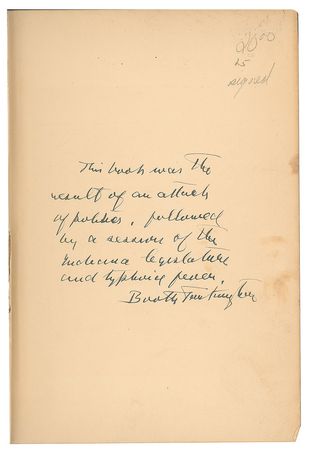 20.00
25
signed
This book was the
result of an attack
of politics, followed
by a session of the
Indiana legislature
and typhoid fever.
Booth Tarkington